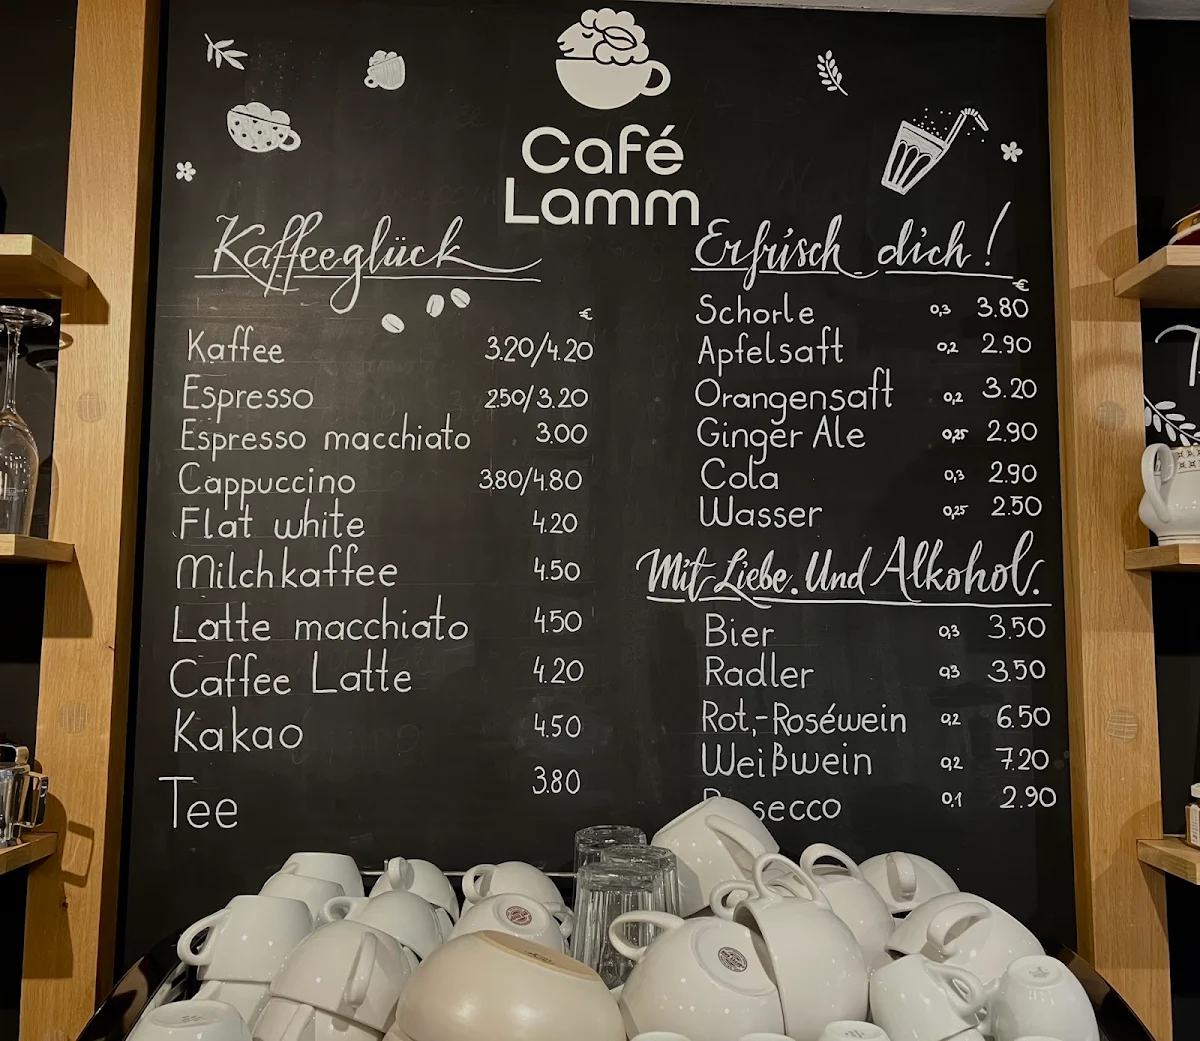 Café
Lamm
Kaffeeglück
€
Kaffee 3.20/4.20
Espresso 2.50/3.20
Espresso macchiato 3.00
Cappuccino 3.80/4.80
Flat white 4.20
Milchkaffee 4.50
Latte macchiato 4.50
Caffee Latte 4.20
Kakao 4.50
Tee 3.80
Erfrisch dich!
€
Schorle 0,3 3.80
Apfelsaft 0,2 2.90
Orangensaft 0,2 3.20
Ginger Ale 0,25 2.90
Cola 0,3 2.90
Wasser 0,25 2.50
Mit Liebe. Und Alkohol.
Bier 0,3 3.50
Radler 0,3 3.50
Rot,-Roséwein 0,2 6.50
Weißwein 0,2 7.20
Prosecco 0,1 2.90